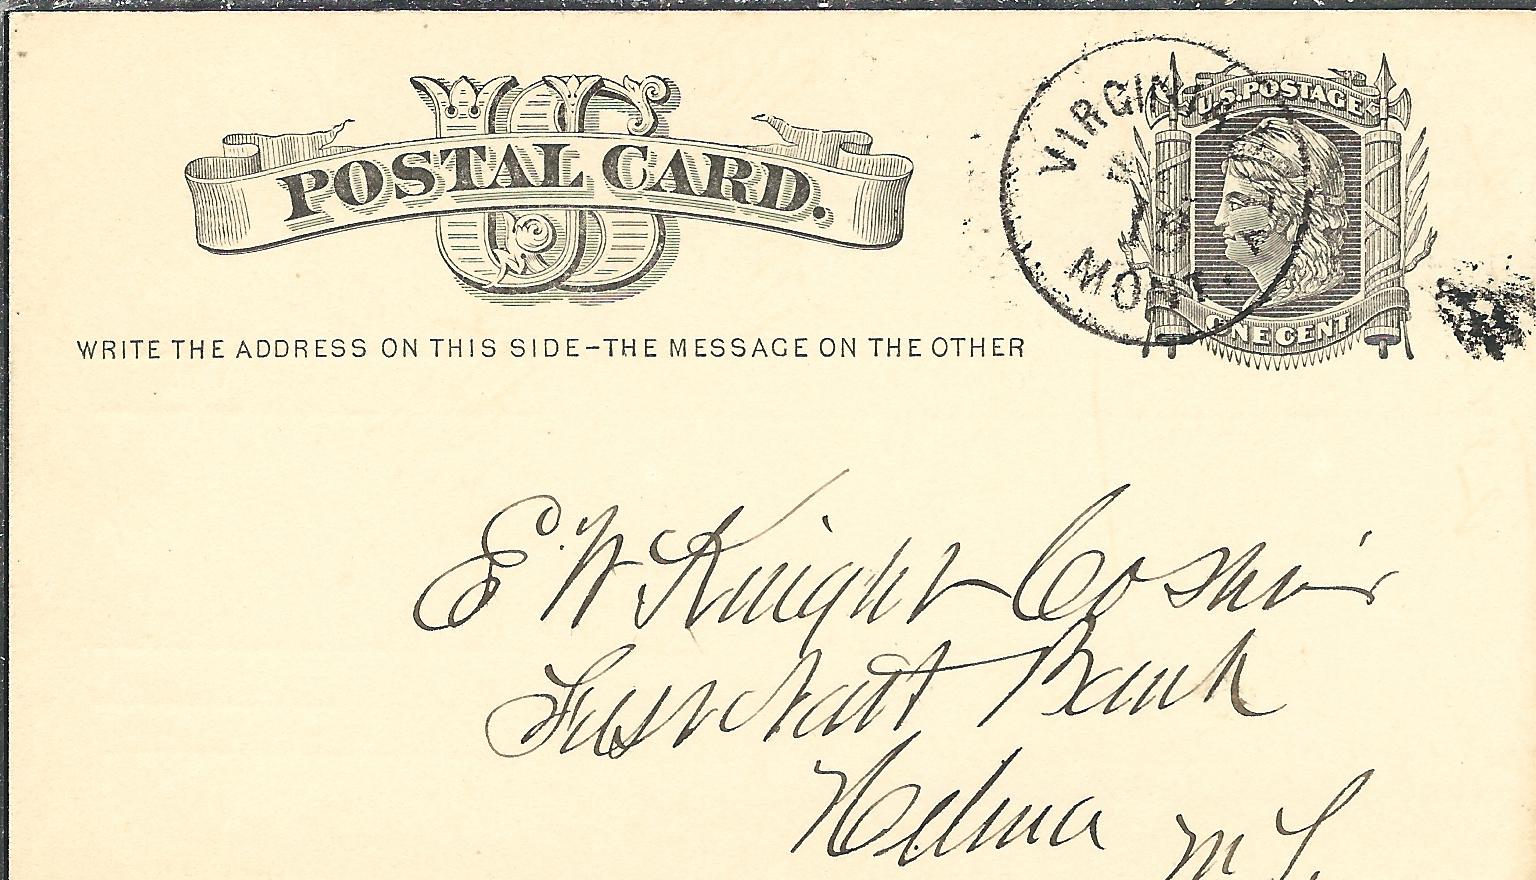 US
POSTAL CARD.
U.S. POSTAGE
VIRGINIA
MONT.
ONE CENT
WRITE THE ADDRESS ON THIS SIDE-THE MESSAGE ON THE OTHER
E. W Knight Cashier
First Natl Bank
Helena
M T.